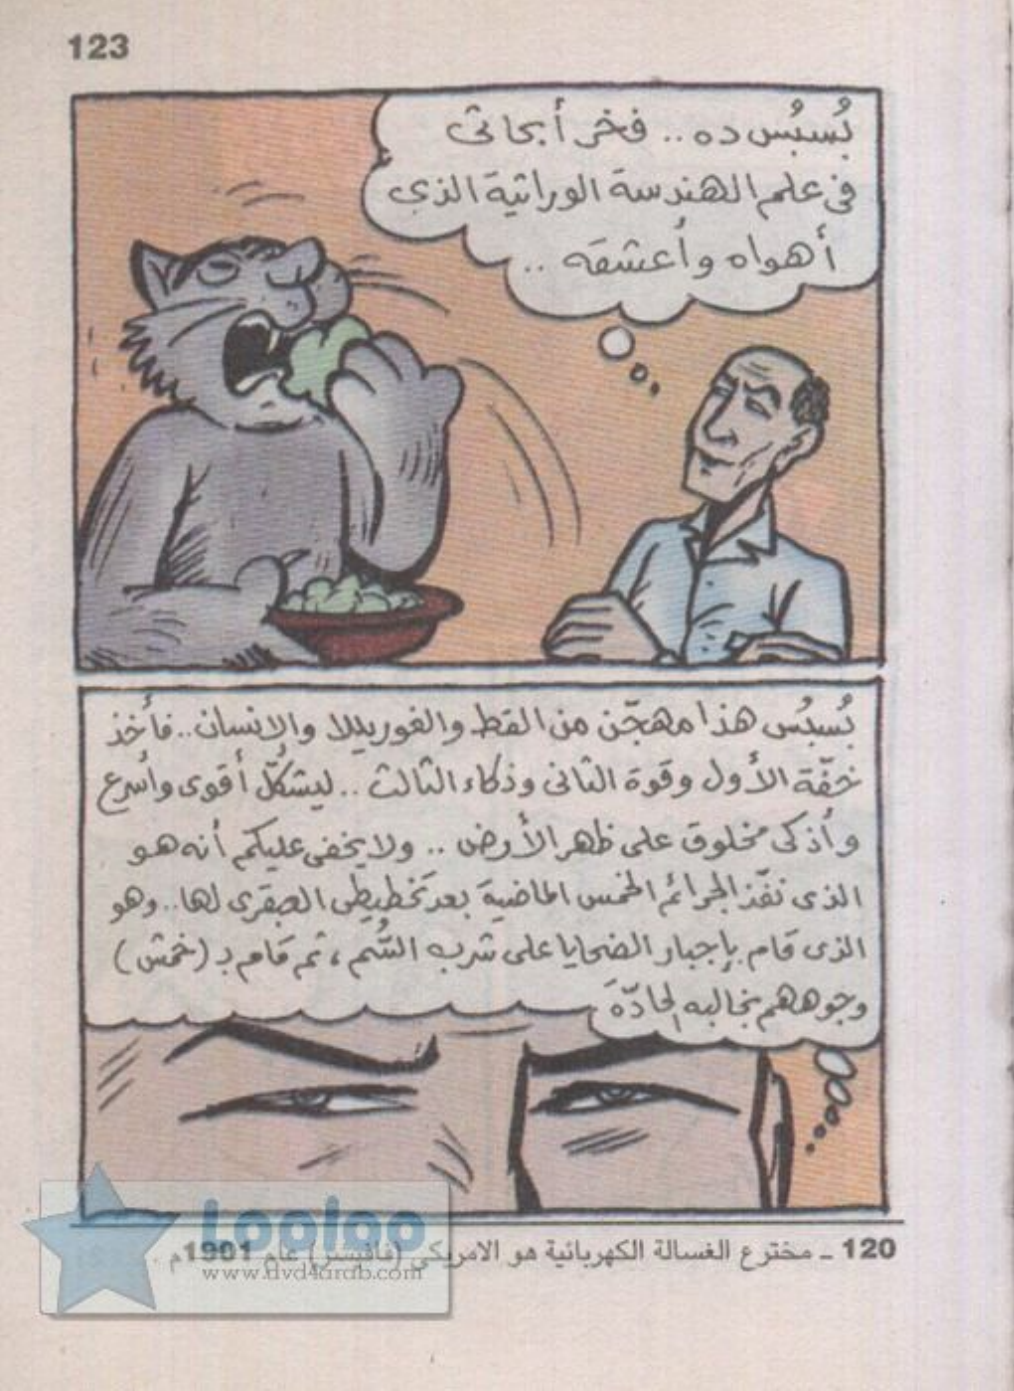 123
بُسبُس ده .. فخر أبحاثى
فى علم الهندسة الوراثية الذى
أهواه وأعشقه ..
بُسبُس هذا مهجّن من القط والغوريللا والإنسان .. فأخذ
خفّة الأول وقوة الثانى وذكاء الثالث .. ليشكّل أقوى وأسرع
وأذكى مخلوق على ظهر الأرض .. ولا يخفى عليكم أنه هو
الذى نفّذ الجرائم الخمس الماضية بعد تخطيطى العبقرى لها .. وهو
الذى قام بإجبار الضحايا على شرب السُّم ، ثم قام بـ (خمش)
وجوههم بمخالبه الحادّة
120 ـ مخترع الغسالة الكهربائية هو الامريكي (فافيشر) عام 1901م ..
Looloo
www.dvd4arab.com